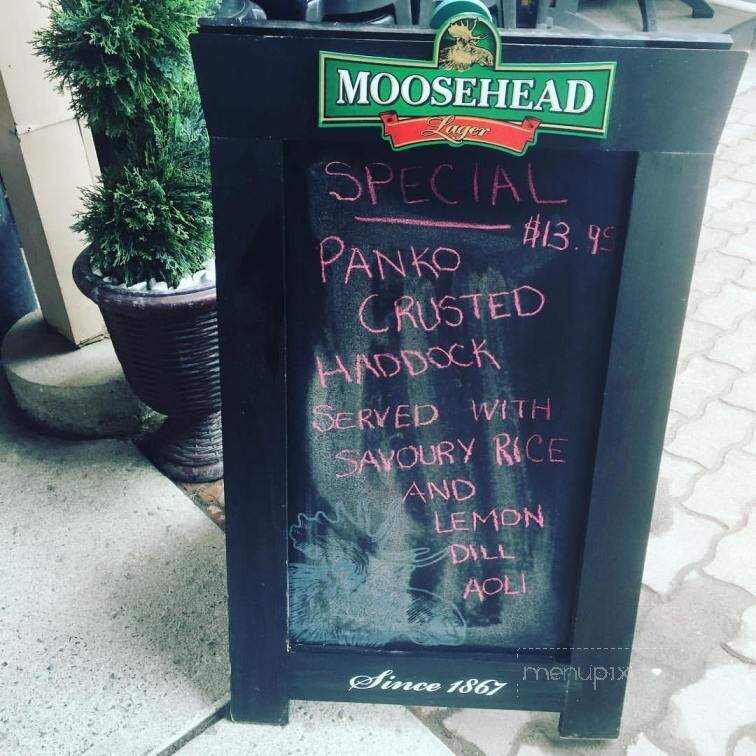 MOOSEHEAD
Lager
SPECIAL
$13.95
PANKO
CRUSTED
HADDOCK
SERVED WITH
SAVOURY RICE
AND
LEMON
DILL
AOLI
Since 1867
menupix